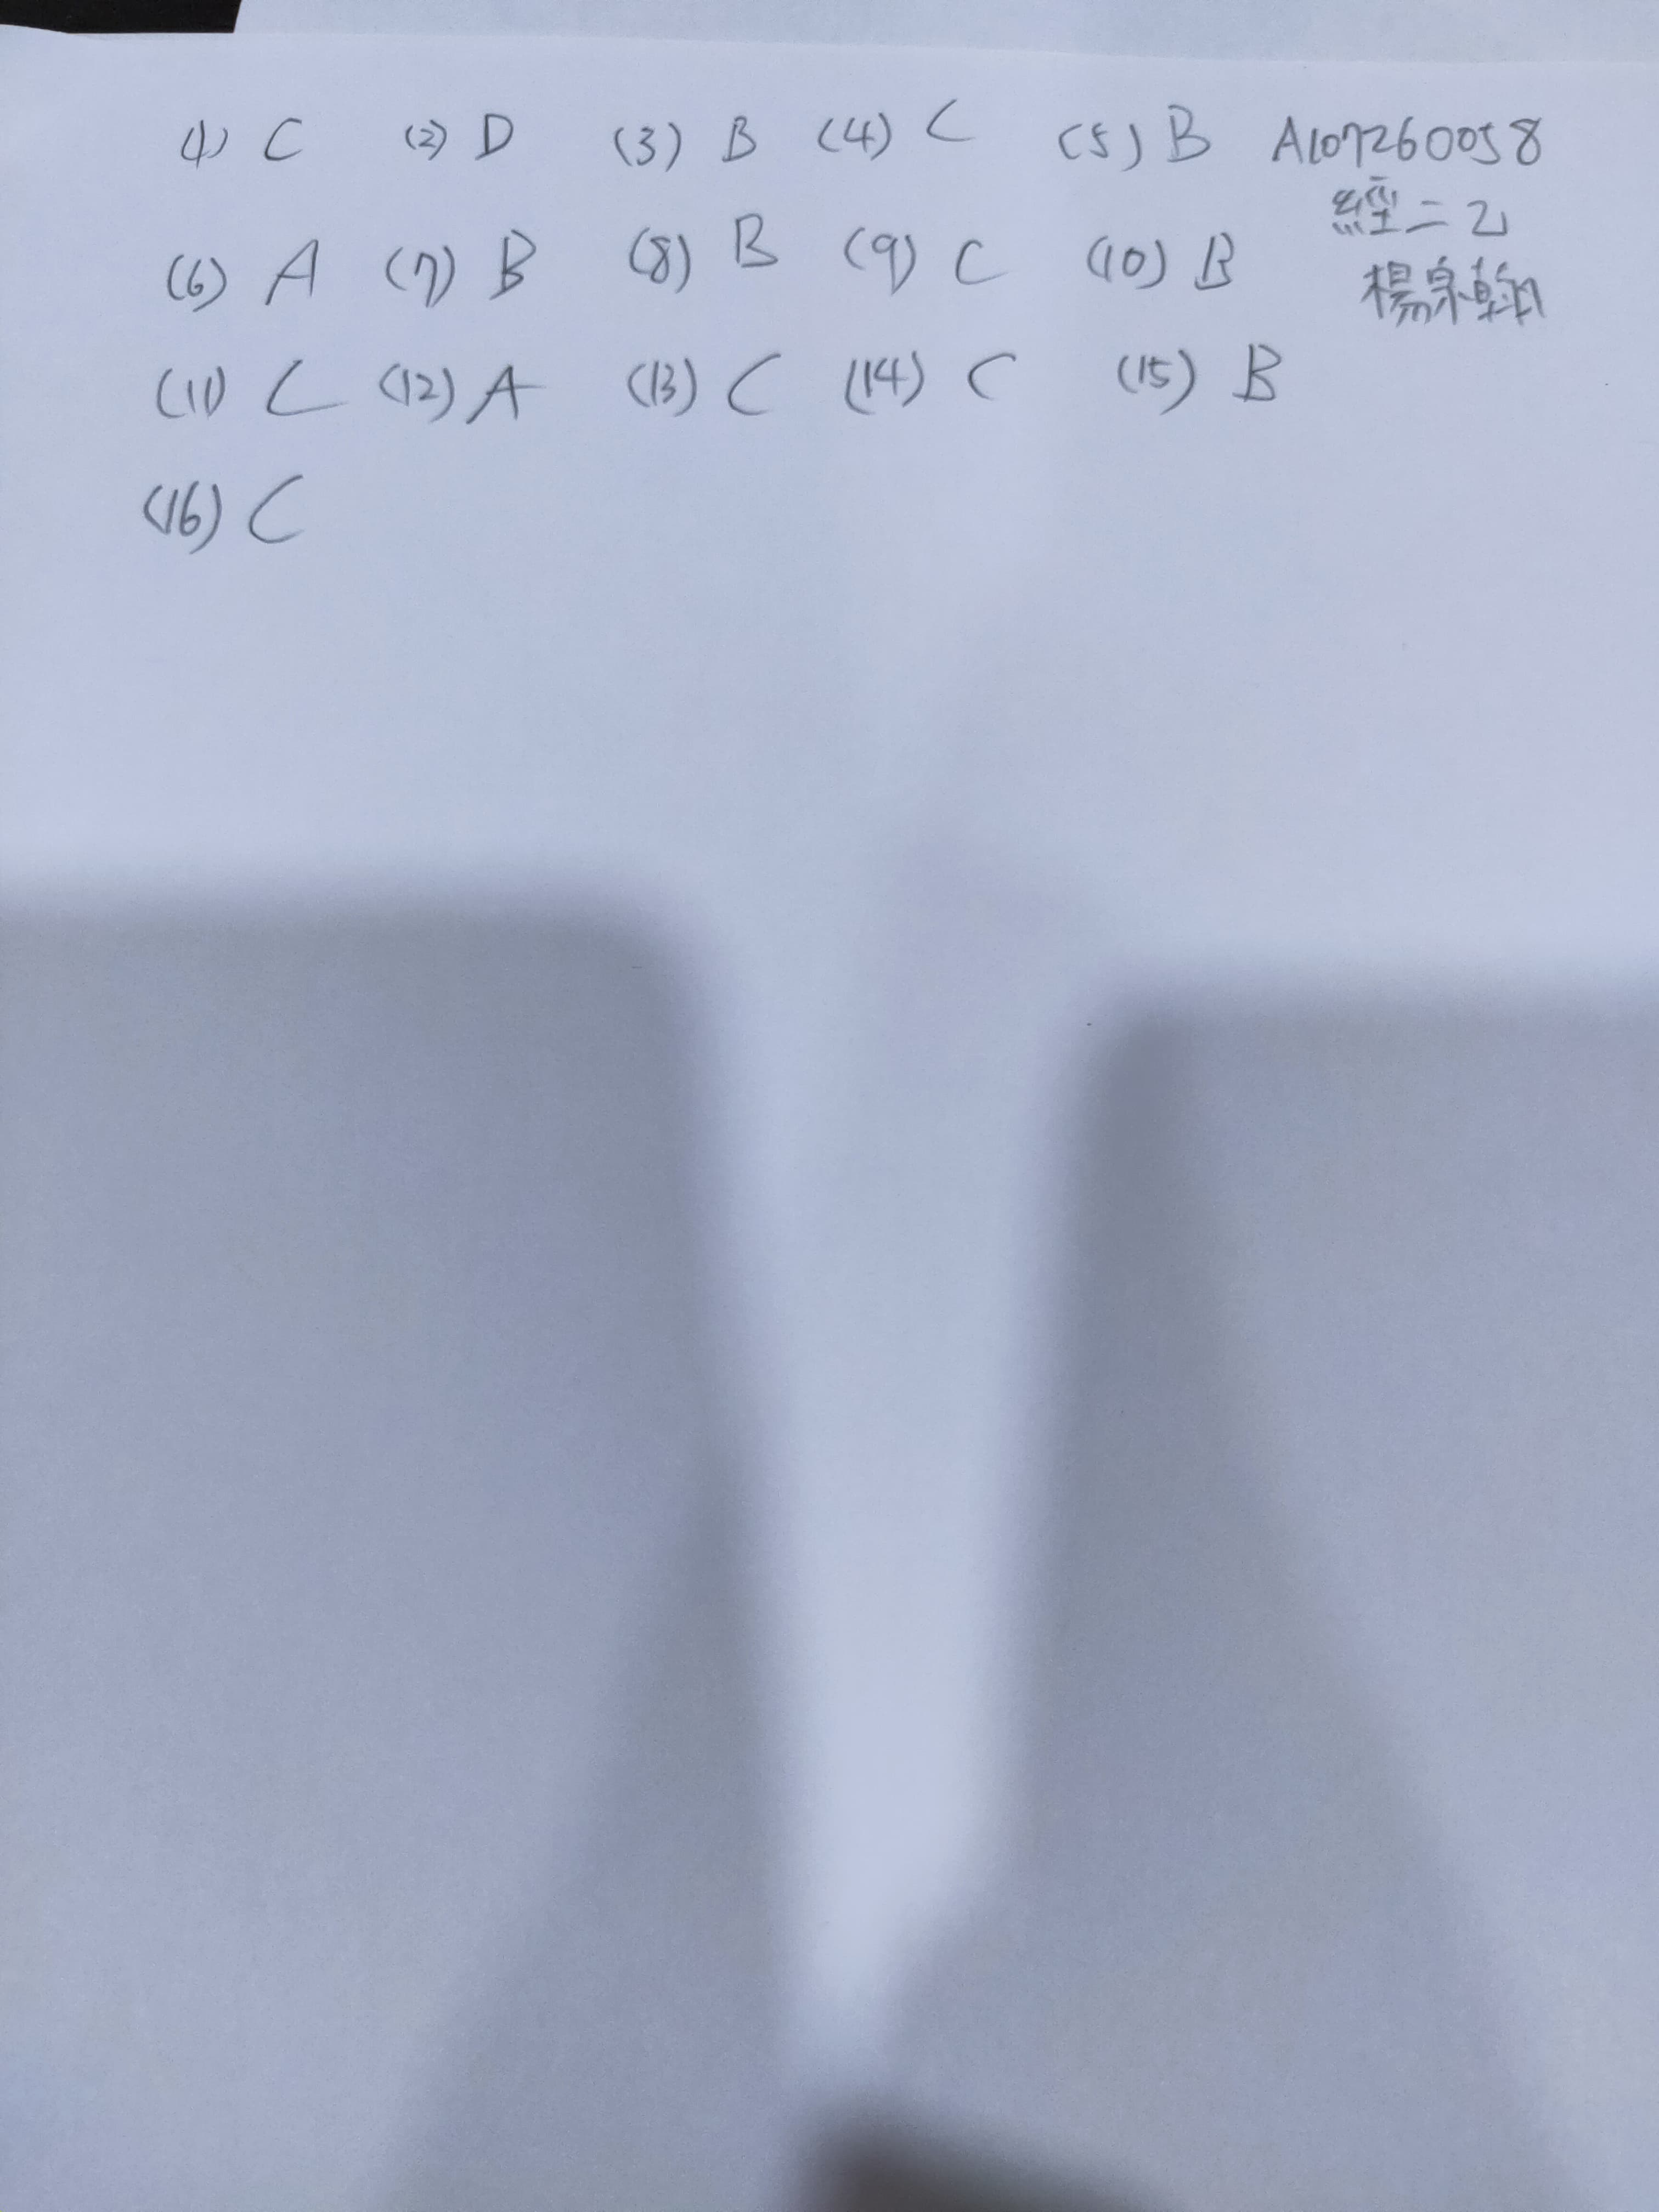 (1) C (2) D (3) B (4) C (5) B A107260058
經二乙
(6) A (7) B (8) B (9) C (10) B
楊泉翰
(11) C (12) A (13) C (14) C (15) B
(16) C